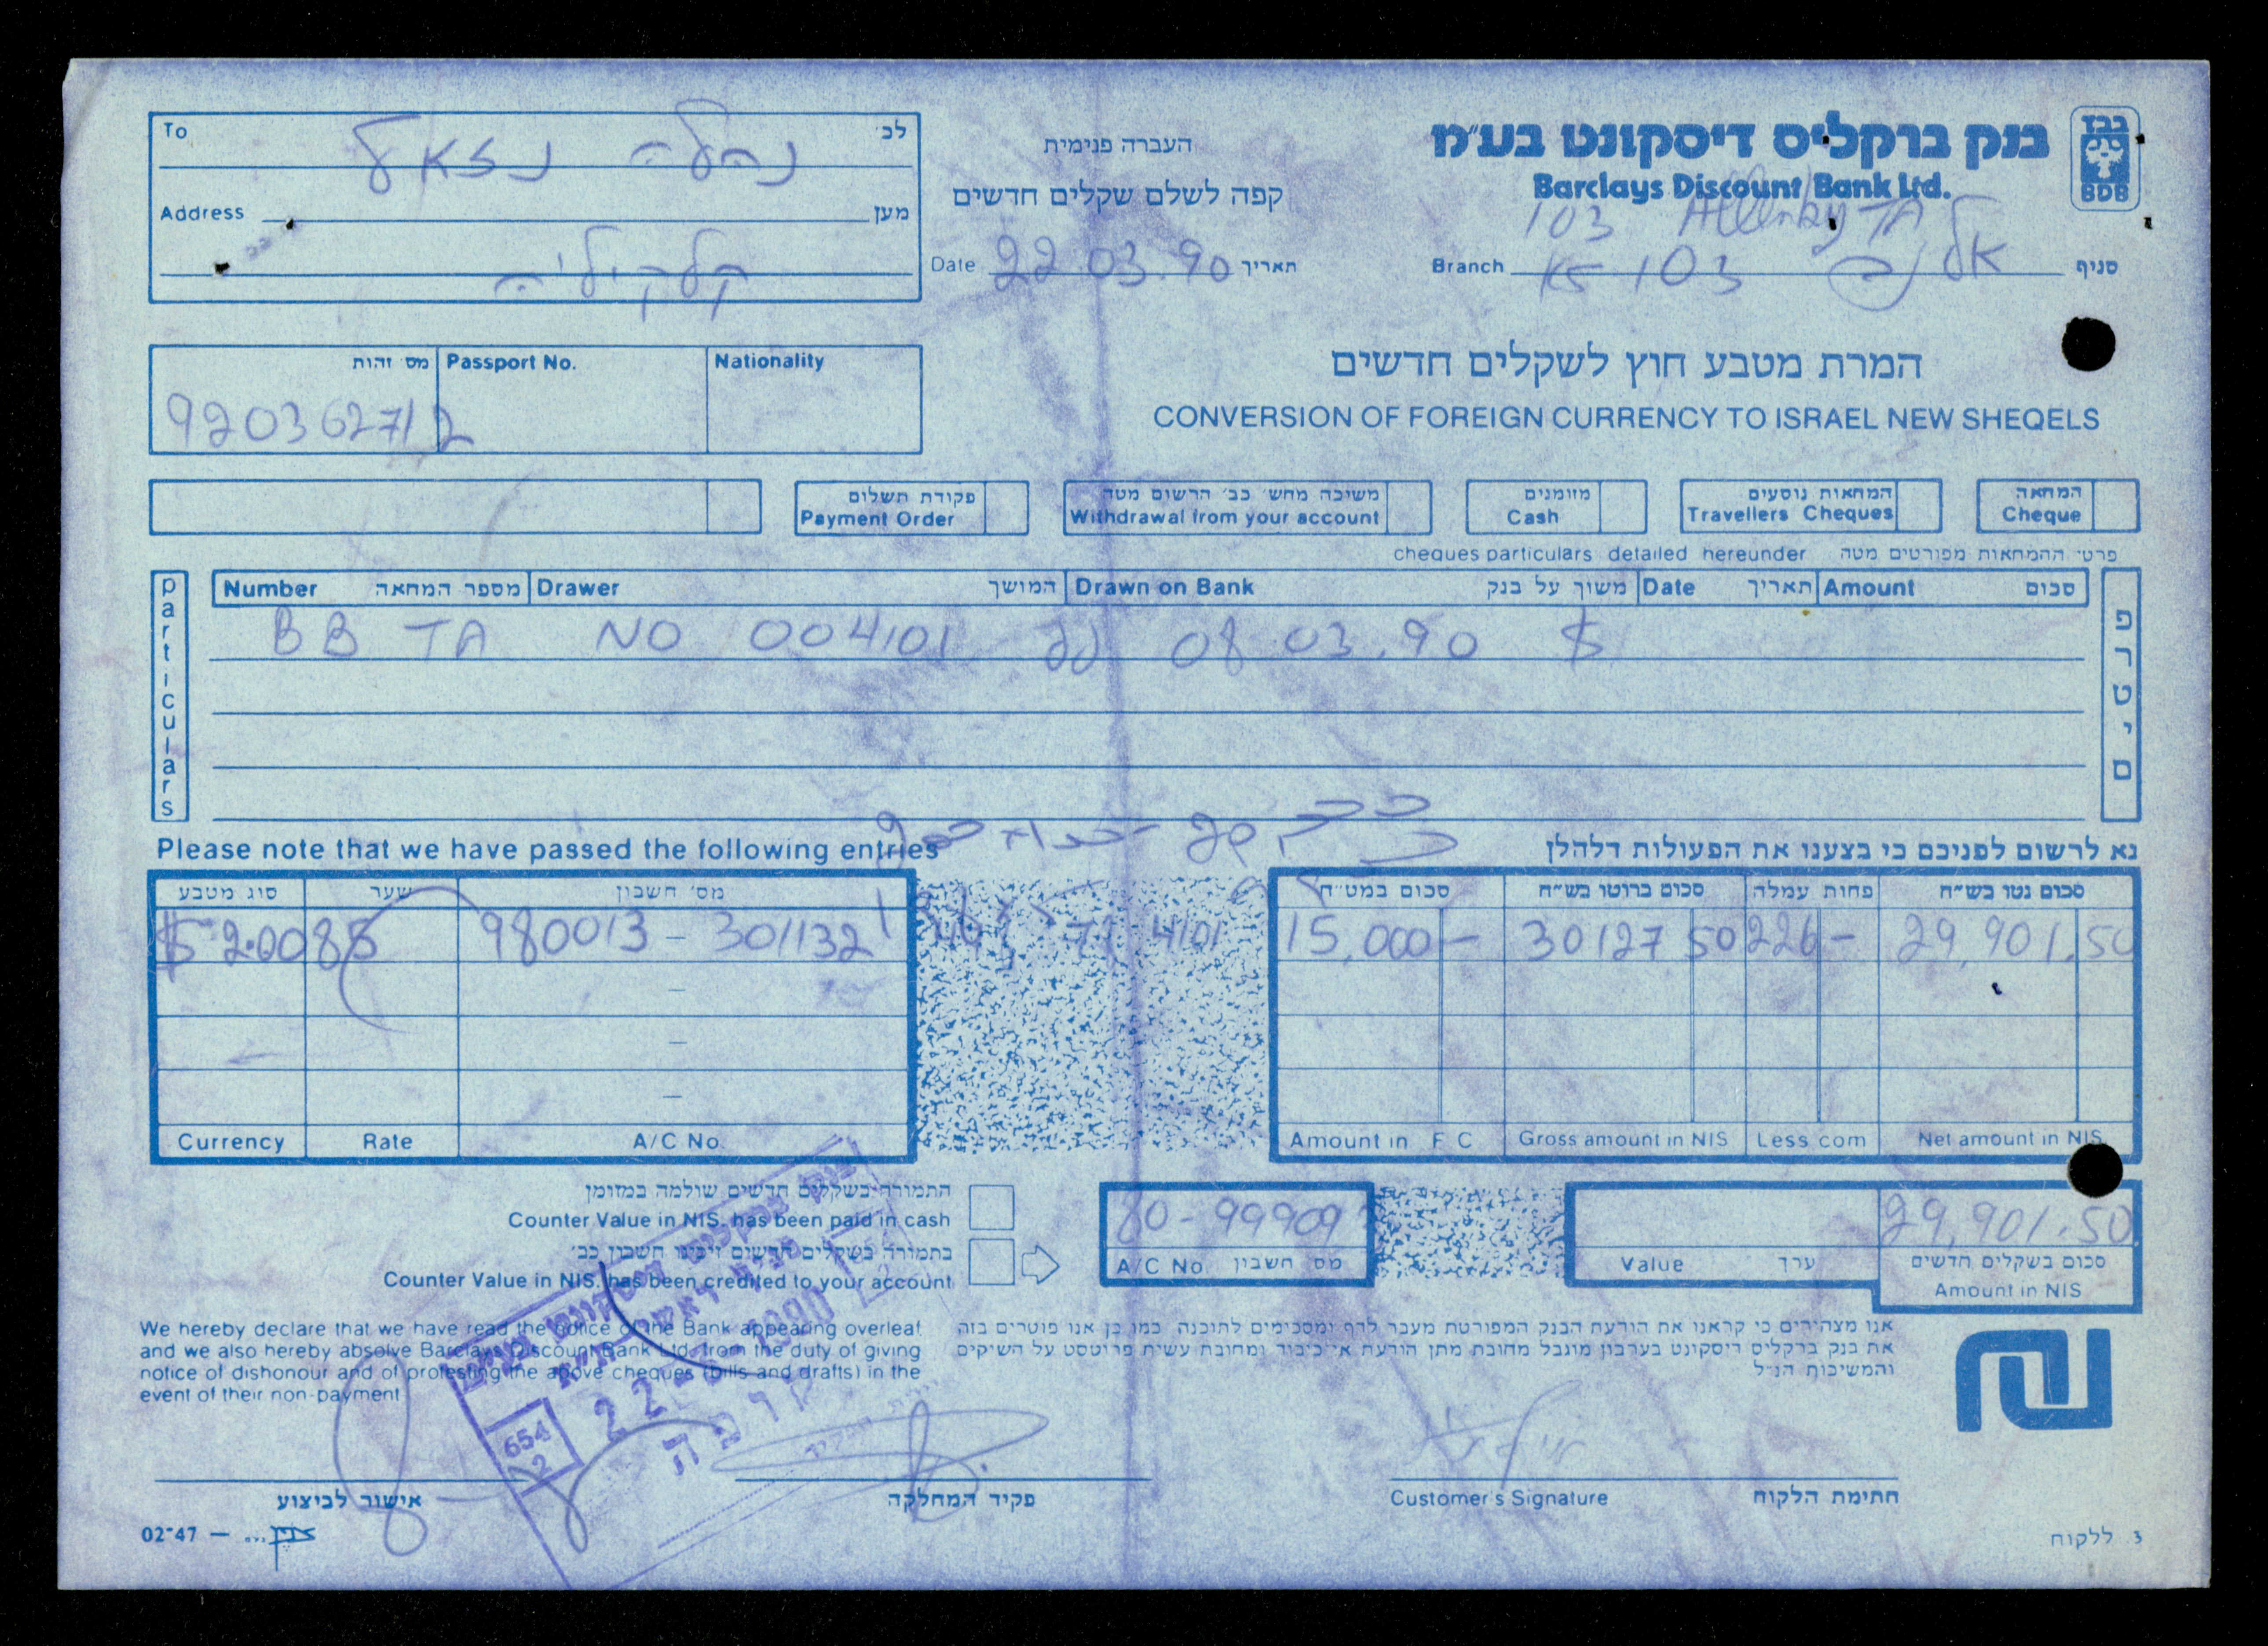 בנק ברקליס דיסקונט בע״מ
Barclays Discount Bank Ltd.
בבד
BDB
103 Allenby TA
Branch אלנבי 103 סניף
העברה פנימית
קפה לשלם שקלים חדשים
Date 22.03.90 תאריך
To לכ׳
נהלה נזאל
Address מען
קלקיליה
מס זהות Passport No. Nationality
92036271 2
המרת מטבע חוץ לשקלים חדשים
CONVERSION OF FOREIGN CURRENCY TO ISRAEL NEW SHEQELS
פקודת תשלום
Payment Order
משיכה מחש׳ כב׳ הרשום מטה
Withdrawal from your account
מזומנים
Cash
המחאות נוסעים
Travellers Cheques
המחאה
Cheque
cheques particulars detailed hereunder פרטי ההמחאות מפורטים מטה
particulars
פרטים
Number מספר המחאה Drawer המושך Drawn on Bank משוך על בנק Date תאריך Amount סכום
BB TA NO 004101 dd 08 03.90 $
Please note that we have passed the following entries
נא לרשום לפניכם כי בצענו את הפעולות דלהלן
סוג מטבע שער מס׳ חשבון
$ 2.0085 980013 - 301132
Currency Rate A/C No.
4101
סכום במט״ח סכום ברוטו בש״ח פחות עמלה סכום נטו בש״ח
15,000 - 30127 50 226 - 29,901.50
Amount in F C Gross amount in NIS Less com Net amount in NIS
התמורה בשקלים חדשים שולמה במזומן
Counter Value in NIS. has been paid in cash
בתמורה בשקלים חדשים זיכינו חשבון כב׳
Counter Value in NIS. has been credited to your account
80-99909
A/C No. מס חשבון
Value ערך
29,901.50
סכום בשקלים חדשים
Amount in NIS
We hereby declare that we have read the notice of the Bank appearing overleaf
and we also hereby absolve Barclays Discount Bank Ltd. from the duty of giving
notice of dishonour and of protesting the above cheques (bills and drafts) in the
event of their non-payment
אנו מצהירים כי קראנו את הודעת הבנק המפורטת מעבר לדף ומסכימים לתוכנה כמו כן אנו פוטרים בזה
את בנק ברקליס דיסקונט בערבון מוגבל מחובת מתן הודעת אי־כיבוד ומחובת עשית פרוטסט על השיקים
והמשיכות הנ״ל
בנק ברקליס דיסקונט בע״מ
22-3-1990
קופה
654
2
אישור לביצוע
פקיד המחלקה
Customer's Signature חתימת הלקוח
02-47 —
3. ללקוח